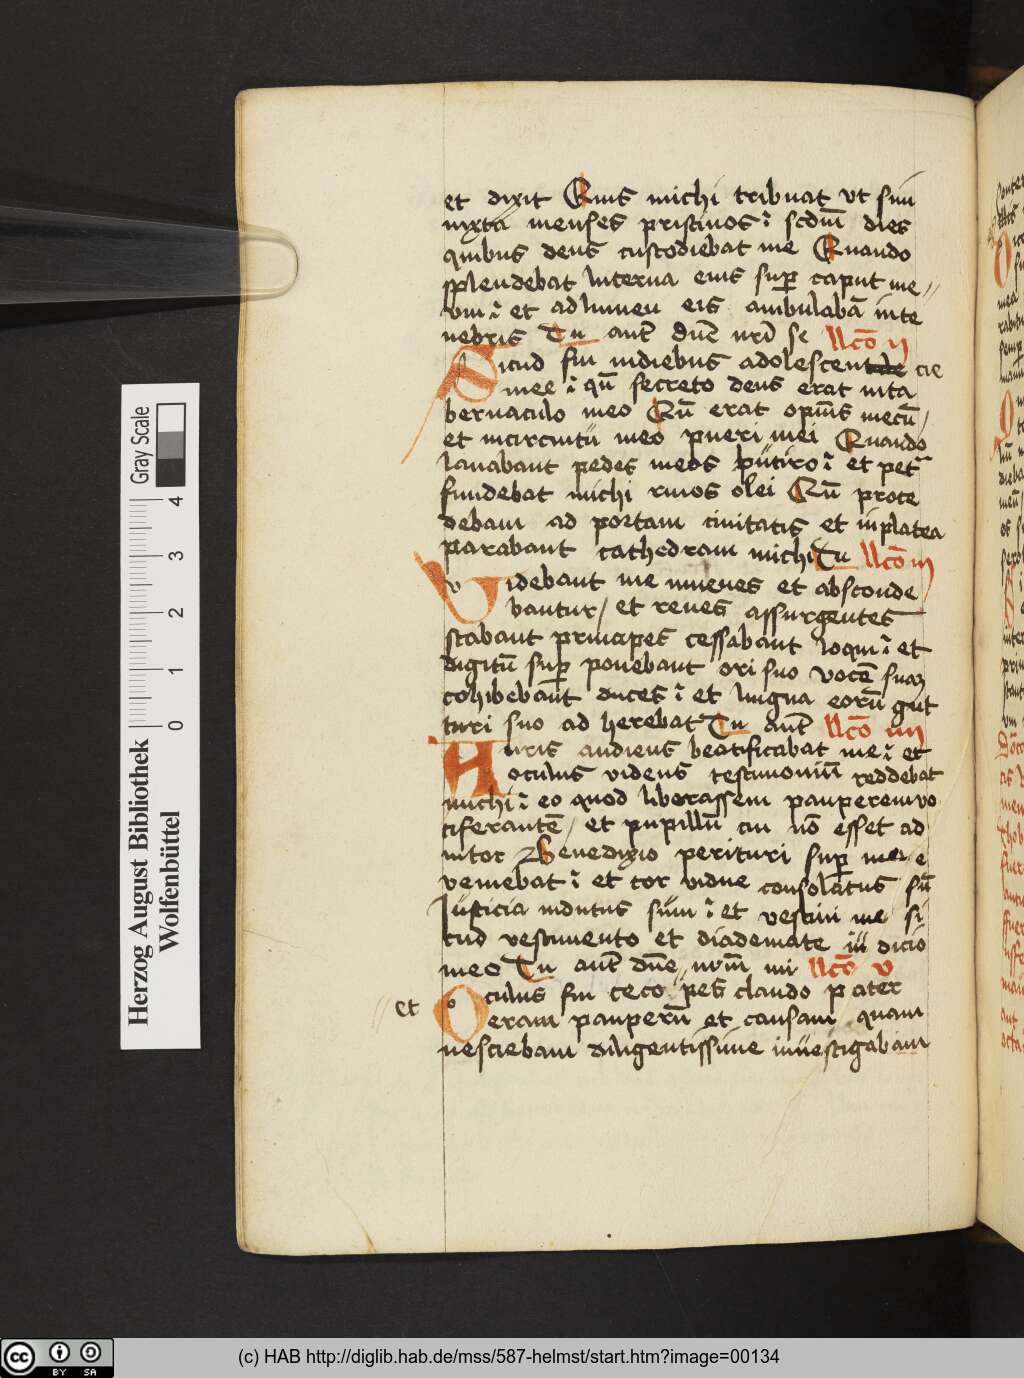 et dixit Quis michi tribuat ut sim
iuxta menses pristinos ⁊ scdm̄ dies
quibus deus custodiebat me Quando
splendebat lucerna eius sup̄ caput me//
um ⁊ et ad lumen eis ambulabā in te
nebris Tu aut̄ dn̄e nr̄i se llcō ij
Sicud fui in diebus adolescen cie
mee ⁊ qn̄ secreto deus erat in ta
bernaculo meo Qn̄ erat opm̄s mecū/
et in circuitū meo pueri mei Quando
lauabant pedes meos butiro ⁊ et pet̄
fundebat michi riuos olei Qn̄ proce
debam ad portam ciuitatis et in platea
parabant cathedram michi Tu llcō iij
Videbant me iuuenes et absconde
bantur/ et senes assurgentes
stabant principes cessabant loqui ⁊ et
digitū sup̄ ponebant ori suo vocē suaʒ
cohibebant duces ⁊ et lingua eorū gut
turi suo ad herebat Tu aut̄ llcō iiij
Auris audiens beatificabat me ⁊ et
oculus videns testimoniū reddebat
michi ⁊ eo quod liberassem pauperem vo
ciferantē/ et pupillū cui nō esset ad
iutor Benedixio perituri sup̄ me e
veniebat ⁊ et cor vidue consolatus sū
Iusticia indutus sum ⁊ et vestiui me si
cud vestimento et diademate iudicio
meo Tu aut̄ dn̄e nr̄m mi llcō v
et Oculus fui ceco pes claudo pater
eram pauperū et causam quam
nesciebam diligentissime inuestigabam
Gray Scale
4
3
2
1
0
Herzog August Bibliothek
Wolfenbüttel
(c) HAB http://diglib.hab.de/mss/587-helmst/start.htm?image=00134
cc
BY SA